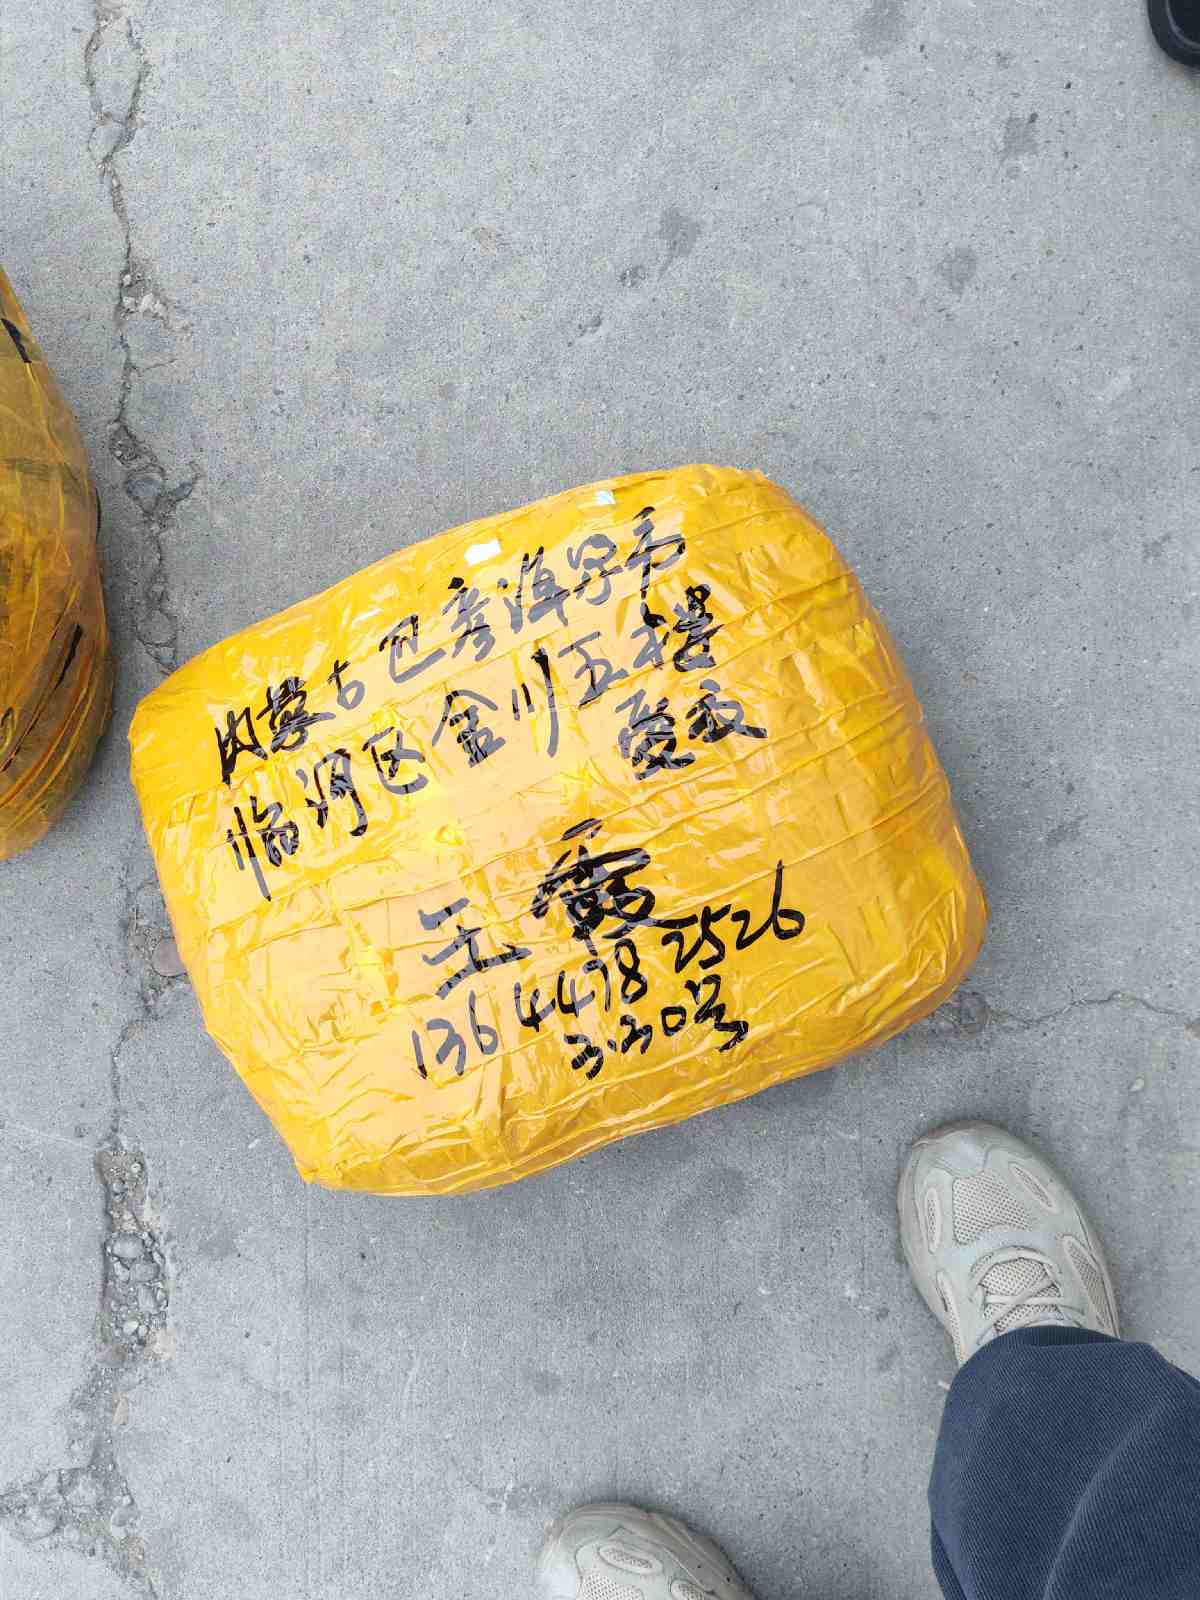 内蒙古巴彦淖尔市
临河区金川五楼
爱衣
王霞
136 4478 2526
3.30号